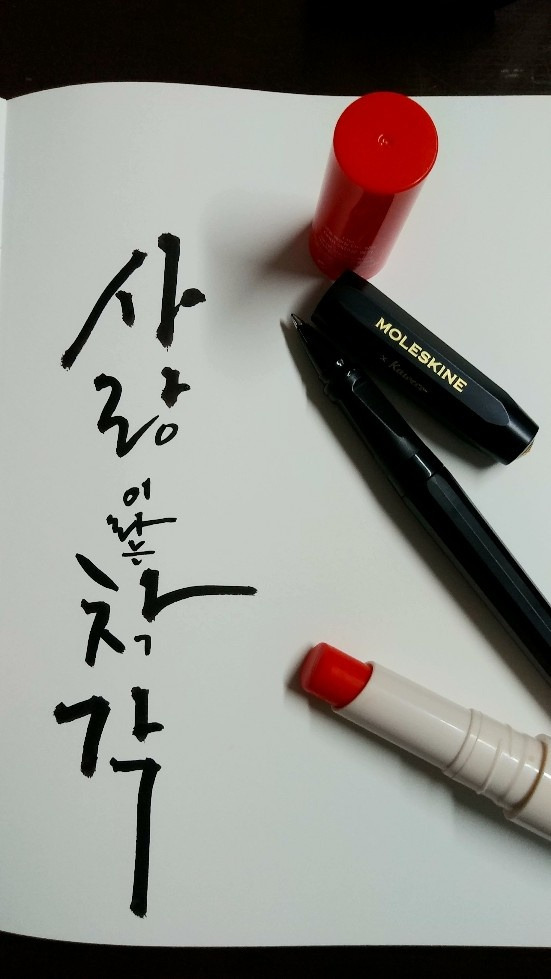 사
랑
이
라
는
착
각
MOLESKINE
× Kaweco